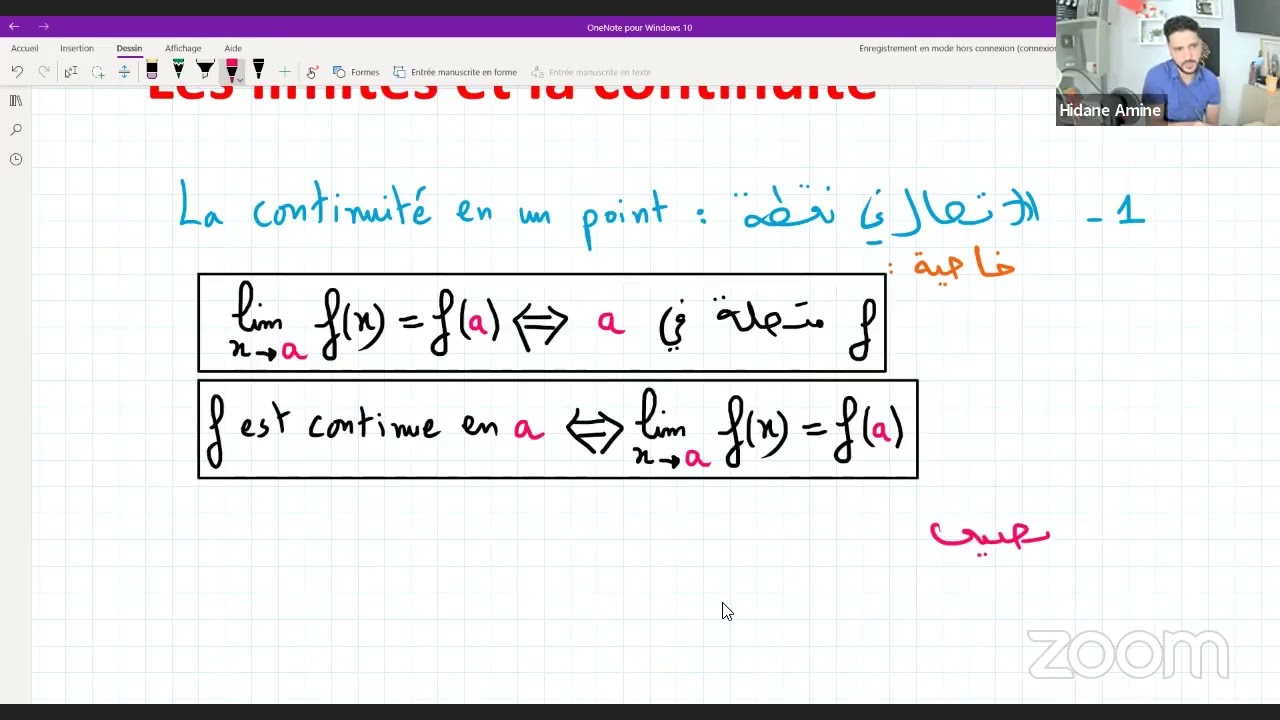 OneNote pour Windows 10
Accueil Insertion Dessin Affichage Aide
Enregistrement en mode hors connexion (connexion
Formes Entrée manuscrite en forme Entrée manuscrite en texte
Hidane Amine
Les limites et la continuité
La continuité en un point : الاتصال في نقطة - 1
خاصية :
lim f(x) = f(a) ⇔ a متصلة في f
x→a
f est continue en a ⇔ lim f(x) = f(a)
x→a
zoom